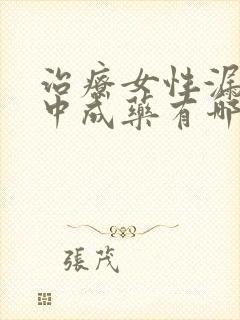 治療女性漏
中成藥有哪
張茂